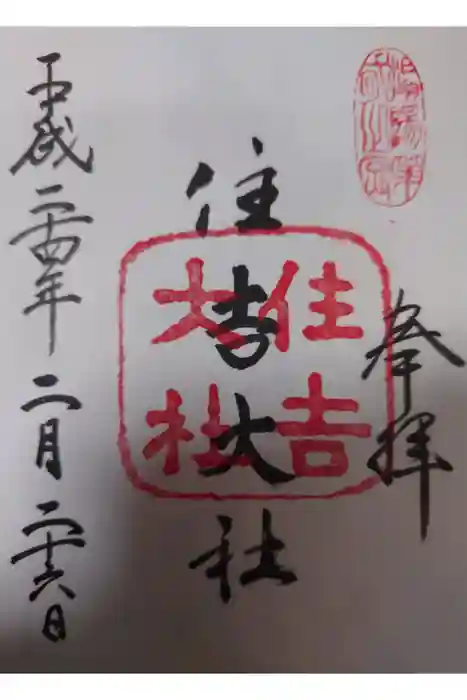 奉拝
住吉大社
住吉
大社
平成二十四年二月二十六日